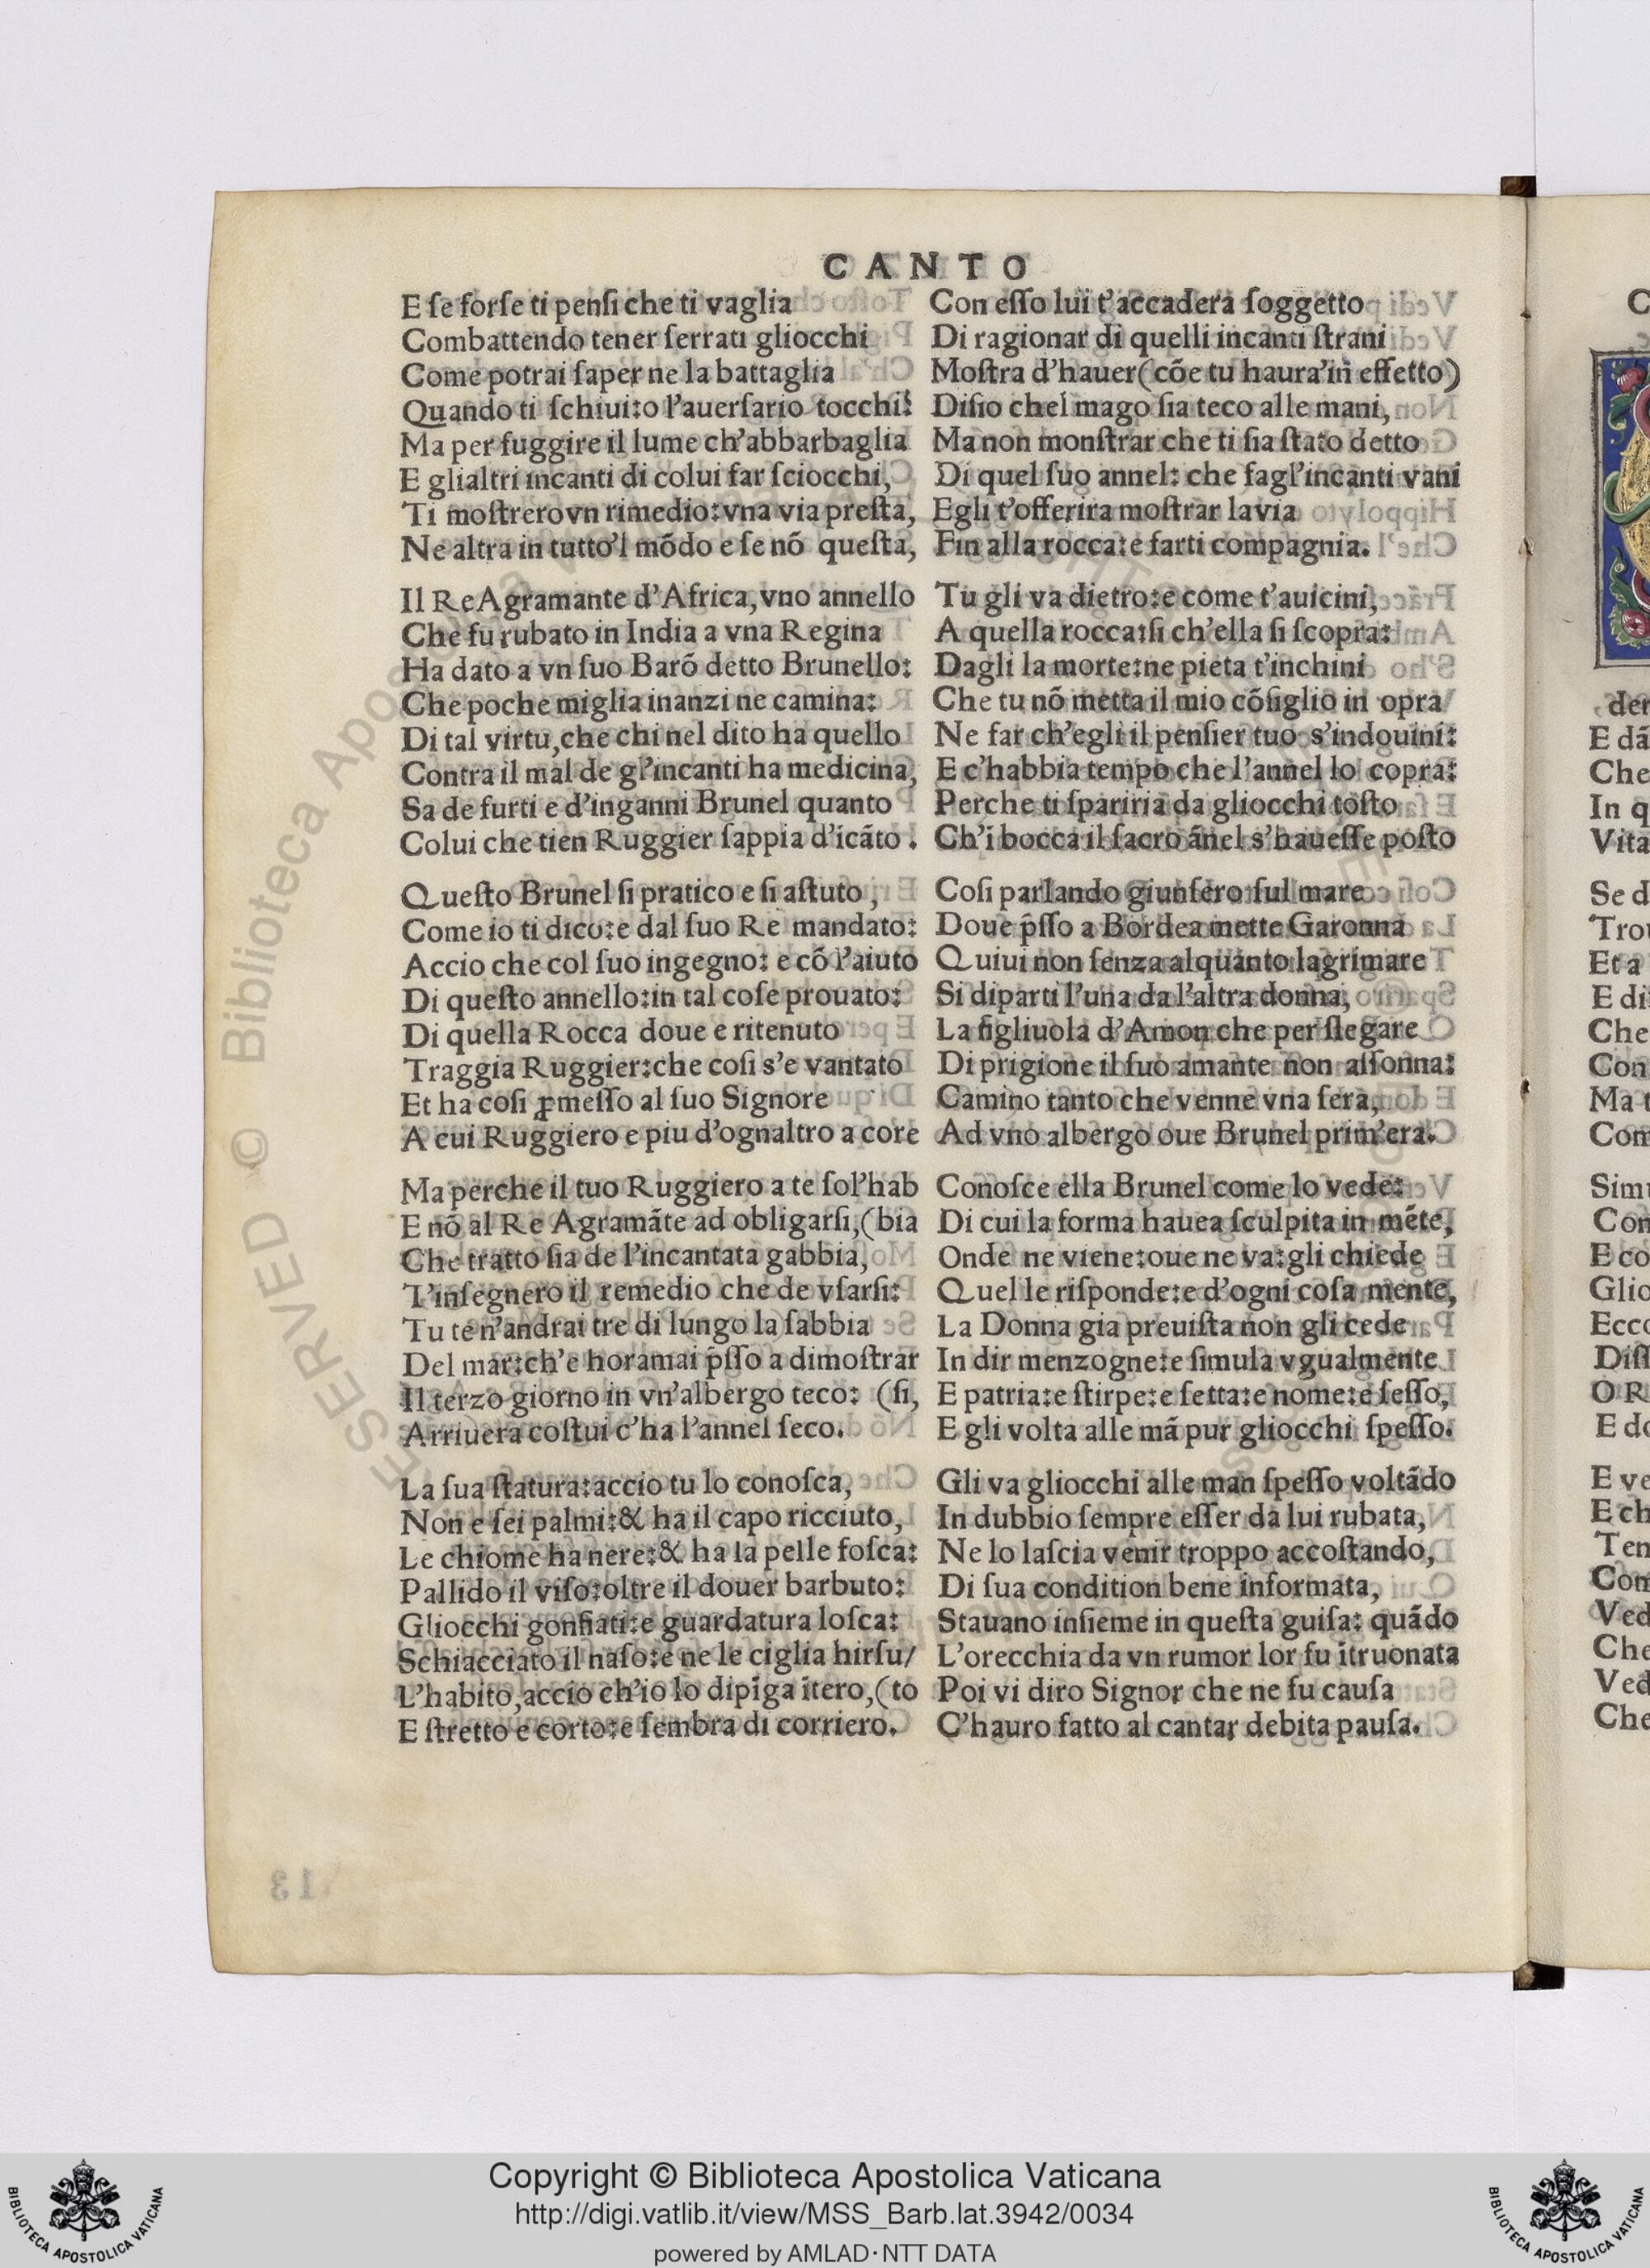 CANTO
E ſe forſe ti penſi che ti vaglia
Combattendo tener ſerrati gliocchi
Come potrai ſaper ne la battaglia
Quando ti ſchiui:o l'auerſario tocchi:
Ma per fuggire il lume ch'abbarbaglia
E glialtri incanti di colui far ſciocchi,
Ti moſtrero vn rimedio:vna via preſta,
Ne altra in tutto'l mõdo e ſe nõ queſta,
Il Re Agramante d'Africa,vno annello
Che fu rubato in India a vna Regina
Ha dato a vn ſuo Barõ detto Brunello:
Che poche miglia inanzi ne camina:
Di tal virtu,che chi nel dito ha quello
Contra il mal de gl'incanti ha medicina,
Sa de furti e d'inganni Brunel quanto
Colui che tien Ruggier ſappia d'icãto.
Queſto Brunel ſi pratico e ſi aſtuto,
Come io ti dico:e dal ſuo Re mandato:
Accio che col ſuo ingegno: e cõ l'aiuto
Di queſto annello:in tal coſe prouato:
Di quella Rocca doue e ritenuto
Traggia Ruggier:che coſi s'e vantato
Et ha coſi ꝓmeſſo al ſuo Signore
A cui Ruggiero e piu d'ognaltro a core
Ma perche il tuo Ruggiero a te ſol'hab
E nõ al Re Agramãte ad obligarſi,(bia
Che tratto ſia de l'incantata gabbia,
T'inſegnero il remedio che de vſarſi:
Tu te n'andrai tre di lungo la ſabbia
Del mar:ch'e horamai p̃ſſo a dimoſtrar
Il terzo giorno in vn'albergo teco: (ſi,
Arriuera coſtui c'ha l'annel ſeco.
La ſua ſtatura:accio tu lo conoſca,
Non e ſei palmi:& ha il capo ricciuto,
Le chiome ha nere:& ha la pelle foſca:
Pallido il viſo:oltre il douer barbuto:
Gliocchi gonfiati:e guardatura loſca:
Schiacciato il naſo:e ne le ciglia hirſu/
L'habito,accio ch'io lo dipĩga ĩtero,(to
E ſtretto e corto:e ſembra di corriero.
Con eſſo lui t'accadera ſoggetto
Di ragionar di quelli incanti ſtrani
Moſtra d'hauer(cõe tu haura'in effetto)
Diſio chel mago ſia teco alle mani,
Ma non monſtrar che ti ſia ſtato detto
Di quel ſuo annel: che fagl'incanti vani
Egli t'offerira moſtrar la via
Fin alla rocca:e farti compagnia.
Tu gli va dietro:e come t'auicini,
A quella rocca:ſi ch'ella ſi ſcopra:
Dagli la morte:ne pieta t'inchini
Che tu nõ metta il mio cõſiglio in opra
Ne far ch'egli il penſier tuo s'indouini:
E c'habbia tempo che l'annel lo copra:
Perche ti ſpariria da gliocchi toſto
Ch'i bocca il ſacro ãnel s'haueſſe poſto
Coſi parlando giunſero ſul mare
Doue p̃ſſo a Bordea mette Garonna
Quiui non ſenza alquanto lagrimare
Si diparti l'una da l'altra donna,
La figliuola d'Amon che per ſlegare
Di prigione il ſuo amante non aſſonna:
Camino tanto che venne vna ſera,
Ad vno albergo oue Brunel prim'era.
Conoſce ella Brunel come lo vede:
Di cui la forma hauea ſculpita in mẽte,
Onde ne viene:oue ne va:gli chiede
Quel le riſponde:e d'ogni coſa mente,
La Donna gia preuiſta non gli cede
In dir menzogne:e ſimula vgualmente
E patria:e ſtirpe:e ſetta:e nome:e ſeſſo,
E gli volta alle mã pur gliocchi ſpeſſo.
Gli va gliocchi alle man ſpeſſo voltãdo
In dubbio ſempre eſſer da lui rubata,
Ne lo laſcia venir troppo accoſtando,
Di ſua condition bene informata,
Stauano inſieme in queſta guiſa: quãdo
L'orecchia da vn rumor lor fu ĩtruonata
Poi vi diro Signor che ne fu cauſa
C'hauro fatto al cantar debita pauſa.
der
E dã
Che
In q
Vita
Se d
Trou
Et a
E di
Che
Con
Ma t
Com
Simu
Con
E co
Glio
Ecco
Diſſ
O R
E do
E ve
E ch
Ten
Com
Ved
Che
Ved
Che
13
ESERVED © Biblioteca Apo
Copyright © Biblioteca Apostolica Vaticana
http://digi.vatlib.it/view/MSS_Barb.lat.3942/0034
powered by AMLAD·NTT DATA
BIBLIOTECA APOSTOLICA VATICANA
BIBLIOTECA APOSTOLICA VATICANA